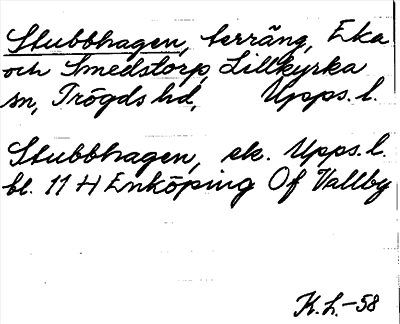 Stubbhagen, terräng, Eka
och Smedstorp, Lillkyrka
sn, Trögds hd, Upps. l.
Stubbhagen, ek. Upps. l.
bl. 11 H Enköping Of Vallby
K.L.-58